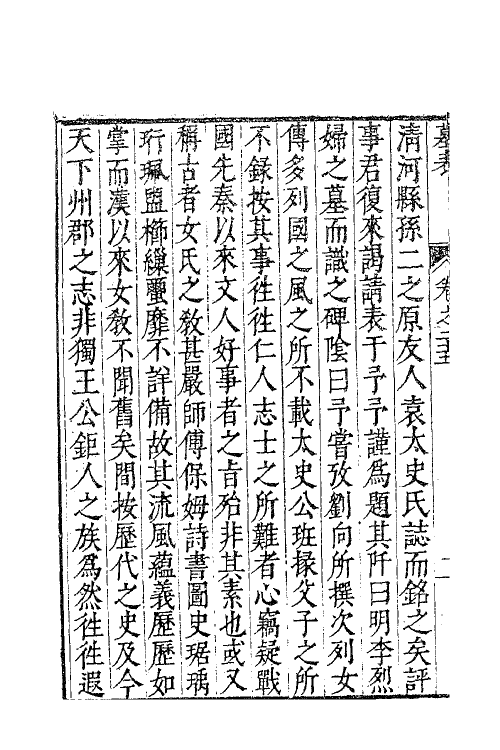 墓表 卷之二十五 二
清河縣孫二之原友人袁太史氏誌而銘之矣評
事君復來謁請表于予予謹為題其阡曰明李烈
婦之墓而識之碑陰曰予嘗攷劉向所撰次列女
傳多列國之風之所不載太史公班掾父子之所
不錄按其事徃徃仁人志士之所難者心竊疑戰
國先秦以來文人好事者之㫖殆非其素也或又
稱古者女氏之敎甚嚴師傅保姆詩書圖史琚瑀
珩珮盥櫛繅蠶靡不詳備故其流風藴義歷歷如
掌而漢以來女敎不聞舊矣間按歷代之史及今
天下州郡之志非獨王公鉅人之族為然徃徃遐